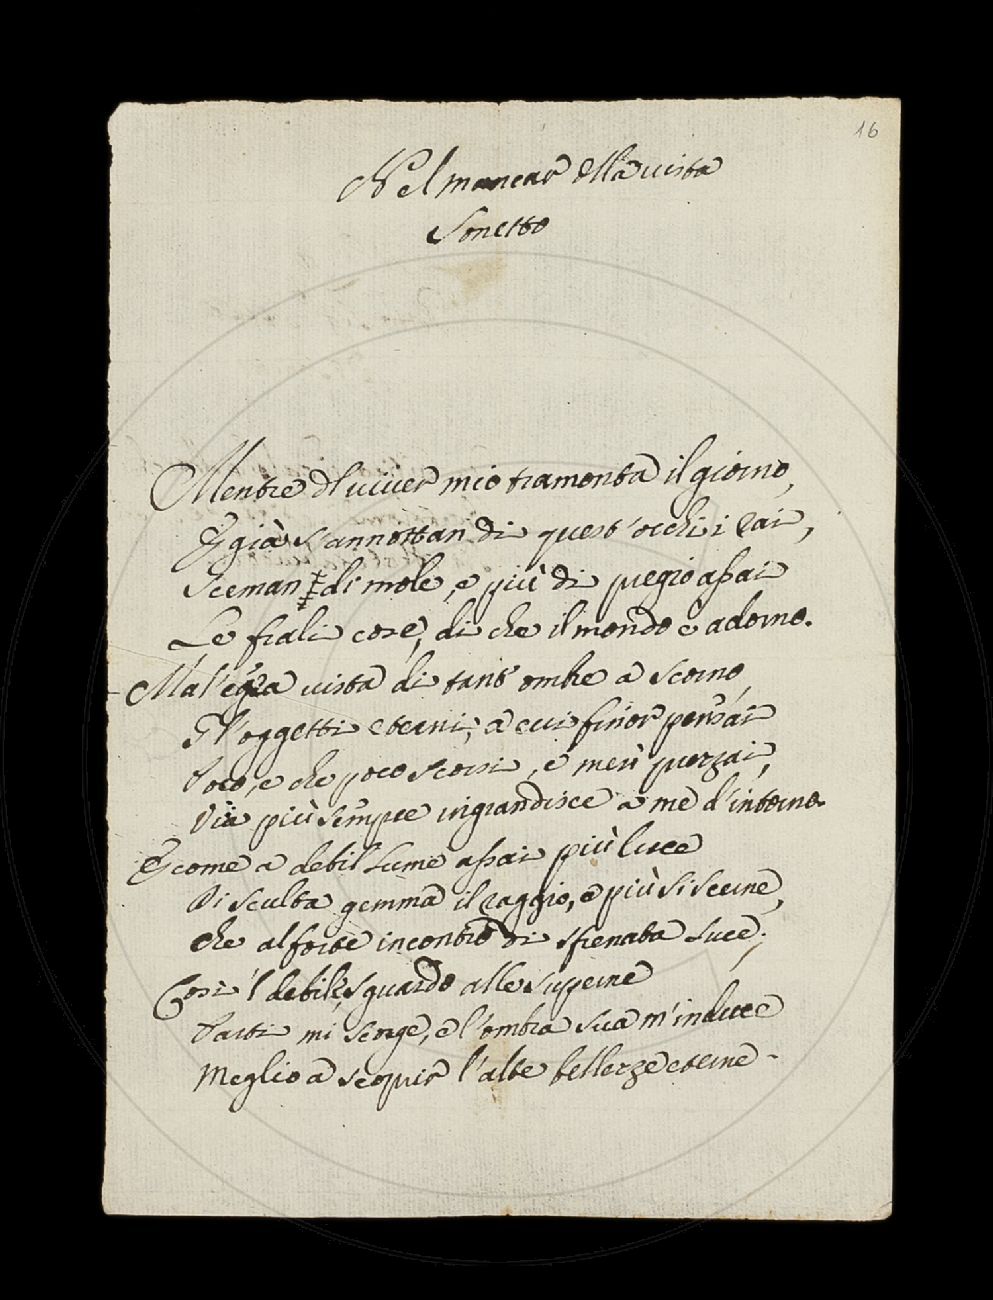 16
Nel mancar della vista
Sonetto
Mentre dl viver mio tramonta il giorno,
E già s'annottan di quest'occhi i rai,
Sceman di mole, e più di pregio assai
Le frali cose, di che il mondo è adorno.
Ma l'egra vista di tant'ombre a scorno
Gl'oggetti eterni, a cui finor pensai
Poco, e che poco scorsi, e men prezzai,
Via più sempre ingrandisce a me d'intorno.
E come a debil lume assai più luce
Di sculta gemma il raggio, e più si scerne,
Che al forte incontro di sfrenata luce;
Così 'l debile sguardo alle superne
Parti mi scorge, e l'ombra sua m'induce
Meglio a seguir l'alte bellezze eterne.